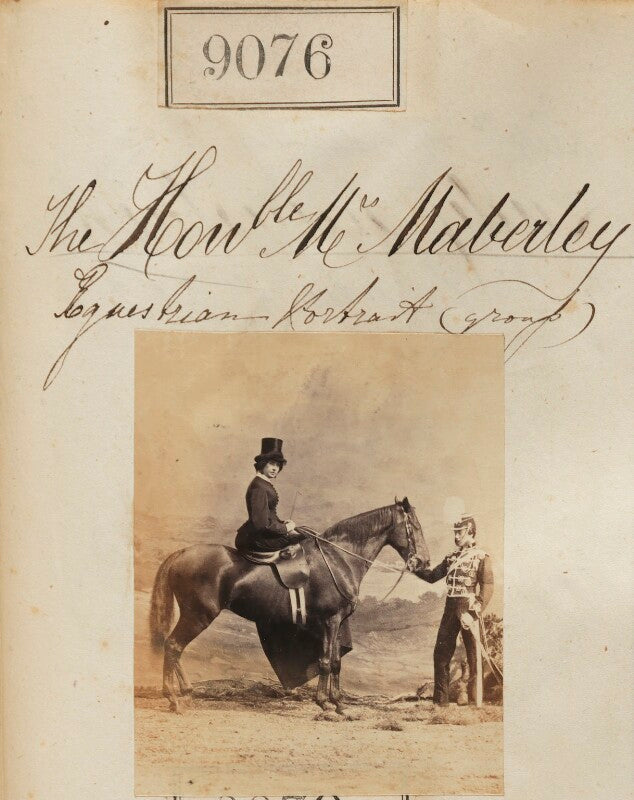 9076
The Honble Mrs Maberley
Equestrian Portrait (group)